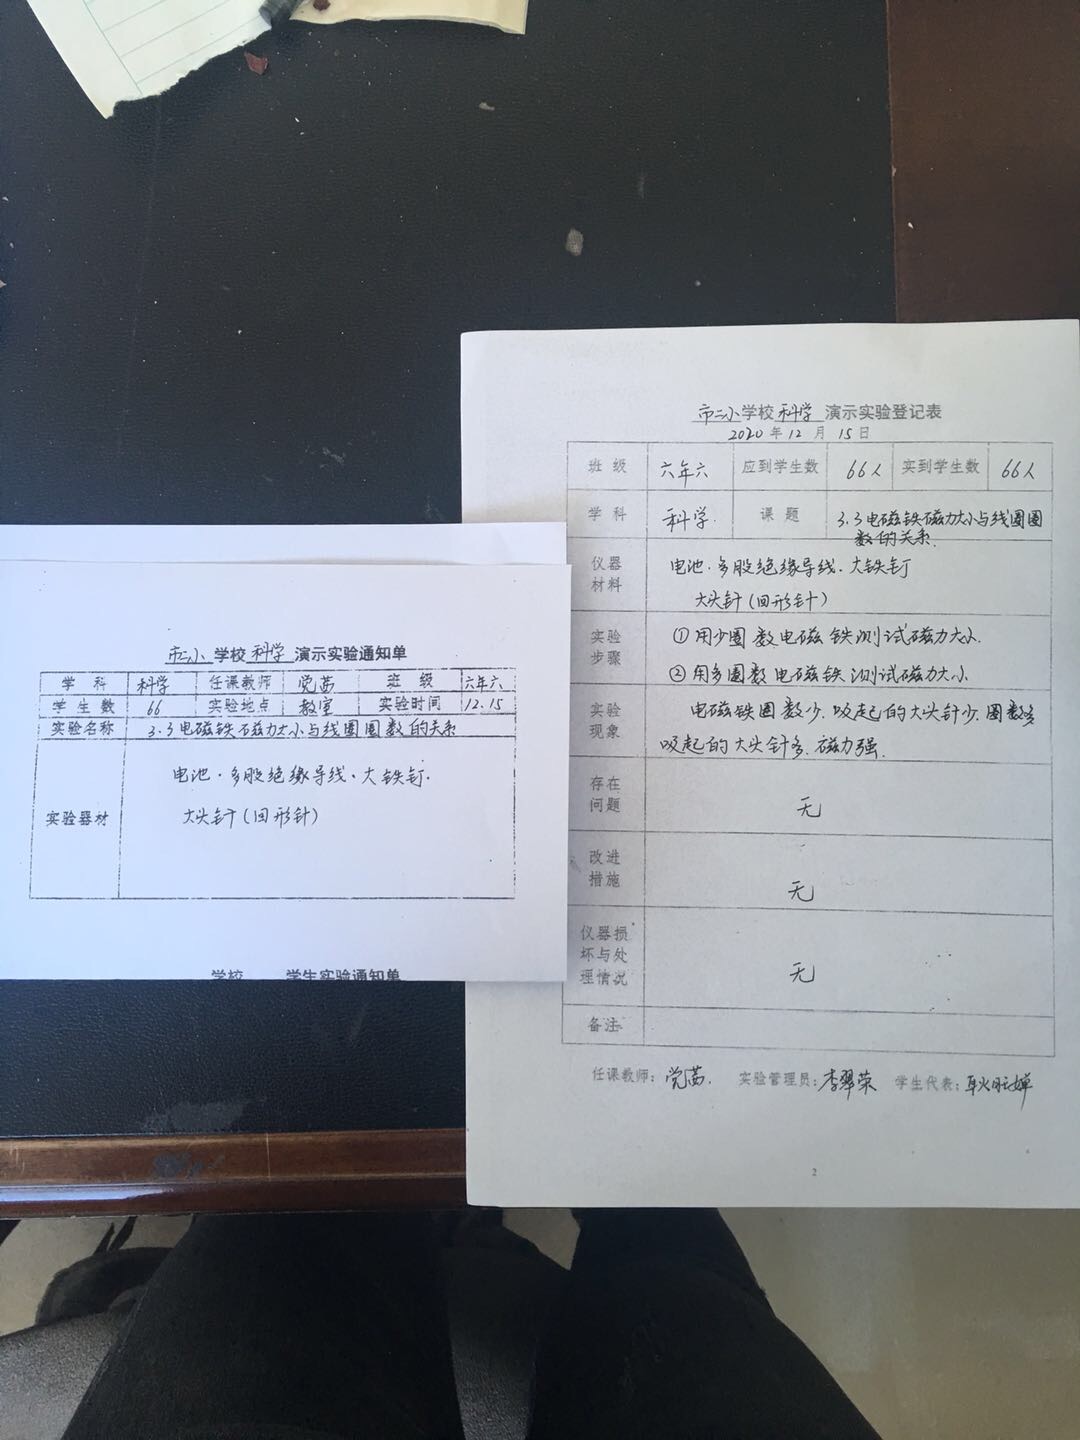 市二小学校科学演示实验通知单
学科 科学 任课教师 党茜 班级 六年六
学生数 66 实验地点 教室 实验时间 12.15
实验名称 3.3电磁铁磁力大小与线圈圈数的关系
实验器材
电池·多股绝缘导线·大铁钉.
大头针(回形针)
学校 学生实验通知单
市二小学校科学演示实验登记表
2020年12月15日
班级 六年六 应到学生数 66人 实到学生数 66人
学科 科学. 课题 3.3电磁铁磁力大小与线圈圈
数的关系.
仪器
材料
电池·多股绝缘导线·大铁钉
大头针(回形针)
实验
步骤
①用少圈数电磁铁测试磁力大小.
②用多圈数电磁铁测试磁力大小
实验
现象
电磁铁圈数少.吸起的大头针少.圈数多
吸起的大头针多.磁力强.
存在
问题
无
改进
措施
无
仪器损
坏与处
理情况
无
备注
任课教师:党茜. 实验管理员:李翠荣 学生代表:
2